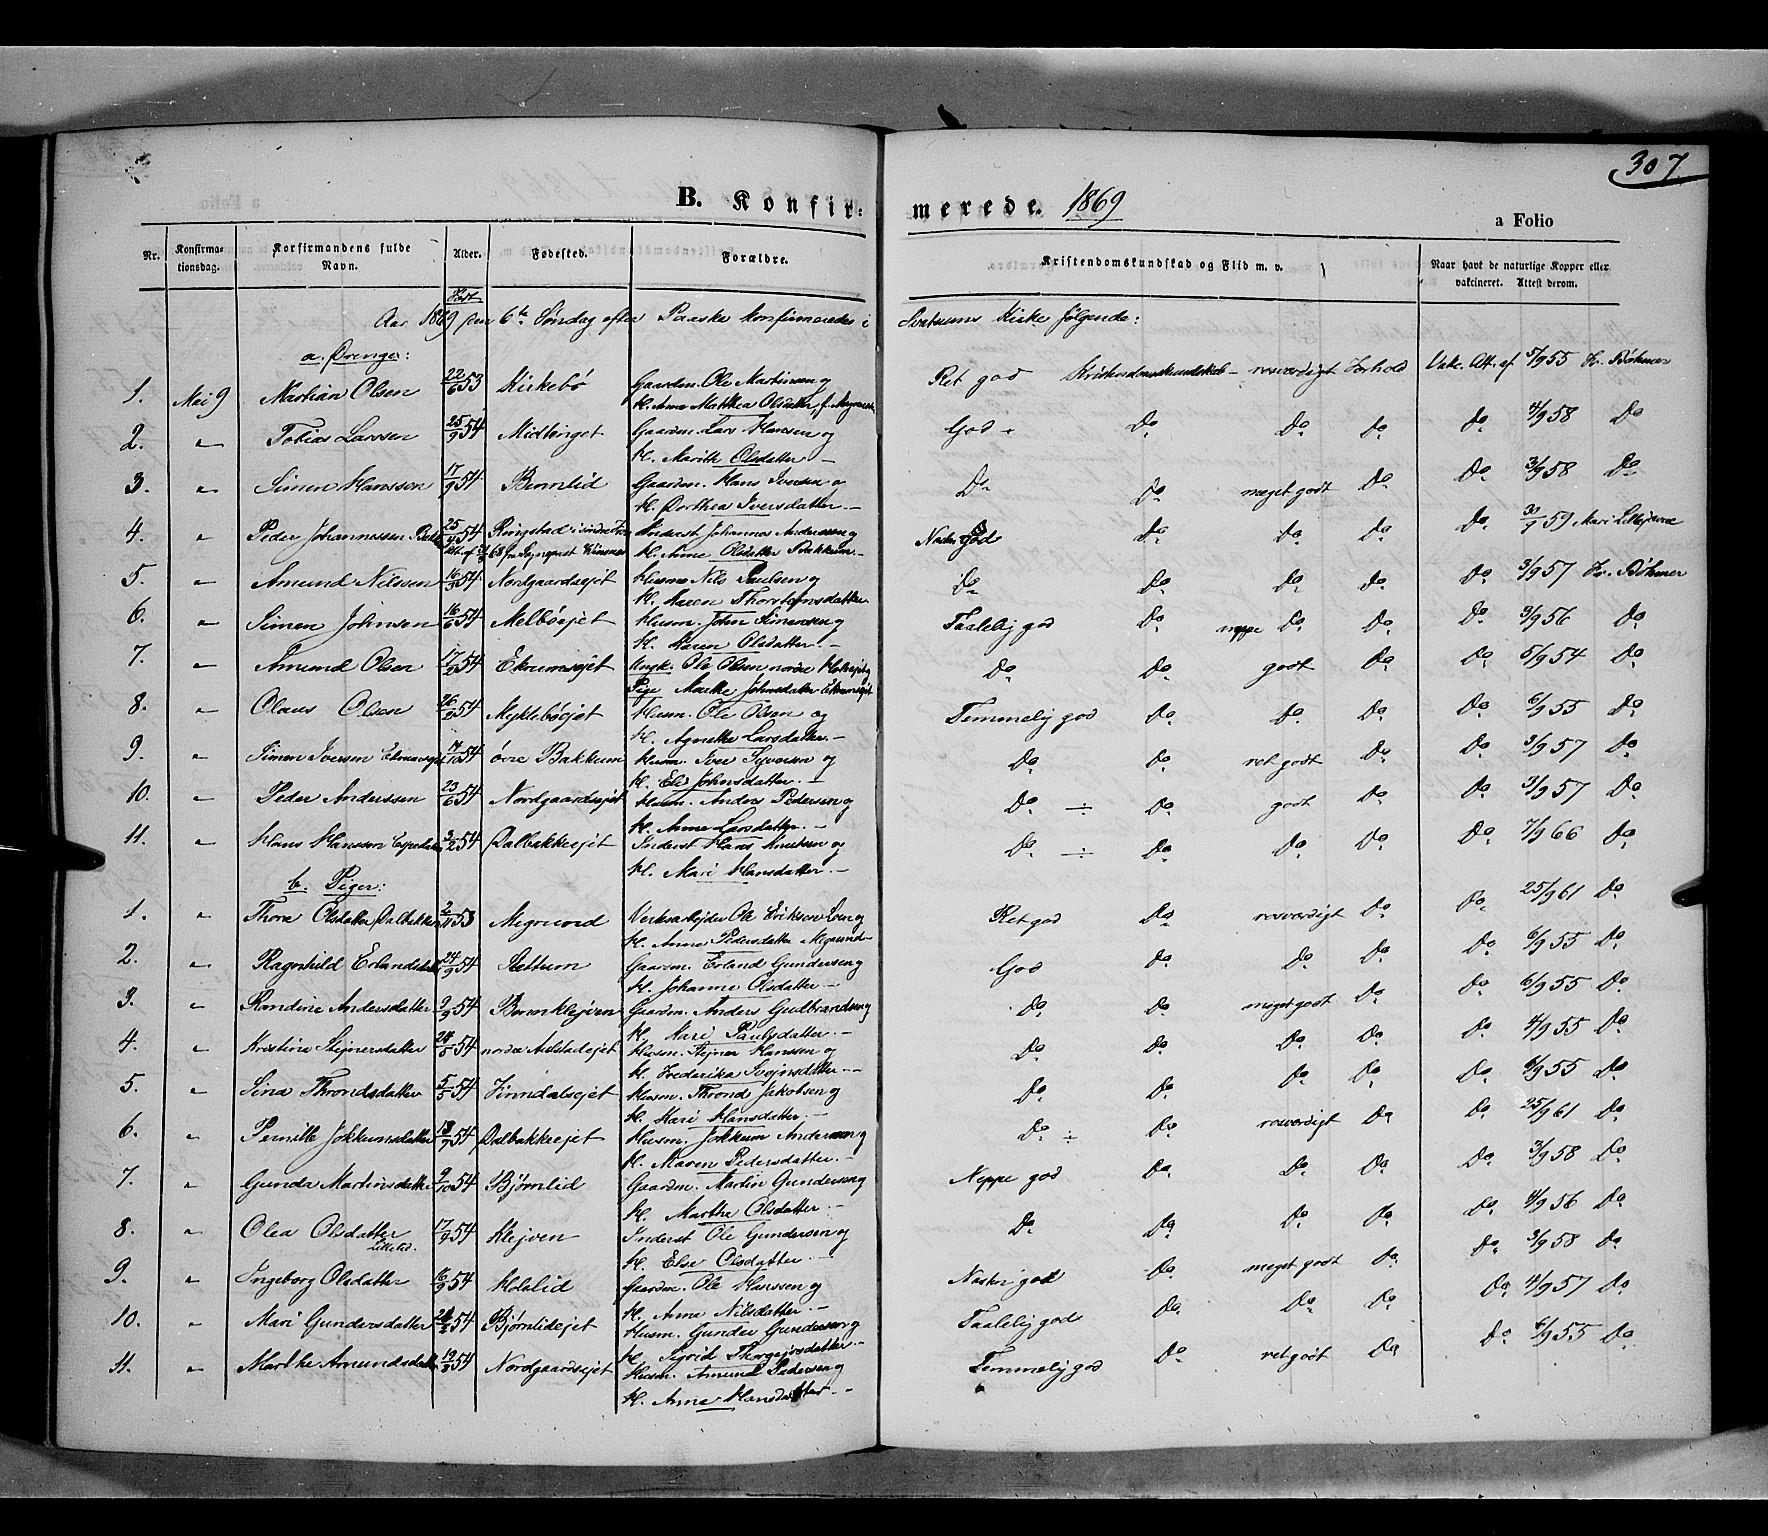 307
B. Konfir-
merede. 1869
a Folio
Nr. Konfirmationsdag. Konfirmandens fulde Navn. Alder. Fødested. Forældre. Kristendomskundskab og Flid m. v. Naar havt de naturlige Kopper eller vakcineret. Attest derom.
Født
Aar 1869 den 6te Søndag efter Paaske konfirmeredes i Svatsums Kirke følgende:
a. Drenger:
1. Mai 9 Martian Olsen 22/6 53 Kirkebø Gaardm. Ole Martinsen og Ret god Kristendomskundskab - roesværdigt Forhold Vakc. Att. af 5/9 55 Hr. Bøhmer
K. Anne Matthea Olsdatter
2. " Tobias Larsen 25/9 54 Midtlinget Gaardm. Lars Hansen og God - Do Do Do Do 4/9 58 Do
K. Marith Olsdatter -
3. " Simen Hanssen 17/9 54 Gaardm. Hans Iversen og Do Do meget godt Do Do 3/9 58 Do
K. Dorthea Iversdatter -
4. " Peder Johannessen 25/4 54 Ringstad i søndre Inderst Johannes Anderssen og god Do Do Do Do 30/9 59 Mari
K. Anne Olsdatter Bakkum -
5. " Amund Nilssen 16/3 54 Nordgaardsejet Husm. Nils Paulsen og Do Do Do Do Do 3/9 57 Hr. Bøhmer
K. Maren Thorstensdatter
6. " Simen Johnsen 16/6 54 Melbøejet Husm. John Simensen og Taalelig god Do neppe Do Do Do 3/9 56 Do
K. Maren Olsdatter -
7. " Amund Olsen 17/2 54 Ekrumsejet Ungk. Ole Olsen nordre Do Do godt Do Do 5/9 54 Do
Pige Marthe Johnsdatter Ekrumsejet
8. " Olaus Olsen 26/2 54 Myklebøejet Husm. Ole Olsen og Temmelig god Do Do Do Do 6/9 55 Do
K. Agnethe Larsdatter -
9. " Simen Iversen 17/10 54 øvre Bakkum Husm. Iver Syversen og Do Do ret godt Do Do 3/9 57 Do
K. Eli Johnsdatter -
10. " Peder Anderssen 23/6 54 Nordgaardsejet Husm. Anders Pedersen og Do ÷ Do godt Do Do 3/9 57 Do
K. Anne Larsdatter -
11. " Hans Hanssen 3/2 54 Dalbakkeejet Inderst Hans Knutsen og Do ÷ Do Do Do Do 7/9 66 Do
K. Mari Hansdatter -
b. Piger:
1. " Thore Olsdatter Dalbakken 2/11 53 Megrund Verksarbejder Ole Eriksen Loen og Ret god Do roesværdigt Do Do 25/9 61 Do
K. Anne Pedersdatter Megrund -
2. " Ragnhild Erlandsdatter 24/9 54 Aettum Gaardm. Erland Gundersen og God Do Do Do Do 6/9 55 Do
K. Johanne Olsdatter -
3. " Randine Andersdatter 9/9 54 Bornklejven Gaardm. Anders Gudbrandsen og Do Do meget godt Do Do 6/9 55 Do
K. Mari Paulsdatter -
4. " Kristine Stejnersdatter 24/5 54 nordre Aulstadejet Husm. Stejner Hanssen og Do Do Do Do Do 4/9 55 Do
K. Frederika Svejnsdatter -
5. " Sina Throndsdatter 5/5 54 Finndalsejet Husm. Thrond Jakobsen og Do Do Do Do Do 6/9 55 Do
K. Mari Hansdatter -
6. " Pernille Jokkumsdatter 13/9 54 Dalbakkeejet Husm. Jokkum Andersen og Do ÷ Do roesværdigt Do Do 25/9 61 Do
K. Maren Pedersdatter -
7. " Gunda Martinsdatter 9/10 54 Bjørnlid Gaardm. Martin Gundersen og Neppe god Do Do Do Do 3/9 58 Do
K. Marthe Olsdatter -
8. " Olea Olsdatter 17/9 54 Klejven Inderst Ole Gundersen og Do Do Do Do Do 4/9 56 Do
K. Else Olsdatter -
9. " Ingeborg Olsdatter 16/9 54 Holslid Gaardm. Ole Hanssen og god Do meget godt Do Do 3/9 58 Do
K. Anne Nilsdatter -
10. " Mari Gundersdatter 54 Bjørnlidejet Husm. Gunder Gundersen og Taalelig god Do Do Do Do 4/9 57 Do
K. Sigrid Thorgejrsdatter -
11. " Marthe Amundsdatter 19/3 54 Nordgaardsejet Husm. Amund Pedersen og Temmelig god Do ret godt Do Do 6/9 55 Do
K. Anne Hansdatter -